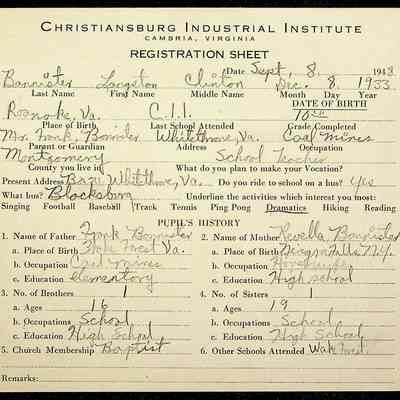 CHRISTIANSBURG INDUSTRIAL INSTITUTE
CAMBRIA, VIRGINIA
REGISTRATION SHEET
Date Sept. 8, 1948
Bannister Langston Clinton Dec. 8, 1933
Last Name First Name Middle Name Month Day Year
Roanoke, Va. C.I.I. 10th DATE OF BIRTH
Place of Birth Last School Attended Grade Completed
Mr. Frank Bannister Whitethorne, Va. Coal Mines
Parent or Guardian Address Occupation
Montgomery School Teacher
County you live in What do you plan to make your Vocation?
Present Address Whitethorne, Va. Do you ride to school on a bus? Yes
What bus? Blacksburg Underline the activities which interest you most:
Singing Football Baseball Track Tennis Ping Pong Dramatics Hiking Reading
PUPIL'S HISTORY
1. Name of Father Frank Bannister 2. Name of Mother Revella Bannister
a. Place of Birth Wake Forest Va. a. Place of Birth Falls N.Y.
b. Occupation Coal mines b. Occupation Housewife
c. Education elementary c. Education High school
3. No. of Brothers 1 4. No. of Sisters 1
a. Ages 16 a. Ages 19
b. Occupations School b. Occupations School
c. Education High School c. Education High School
5. Church Membership Baptist 6. Other Schools Attended Wake Forest
Remarks: